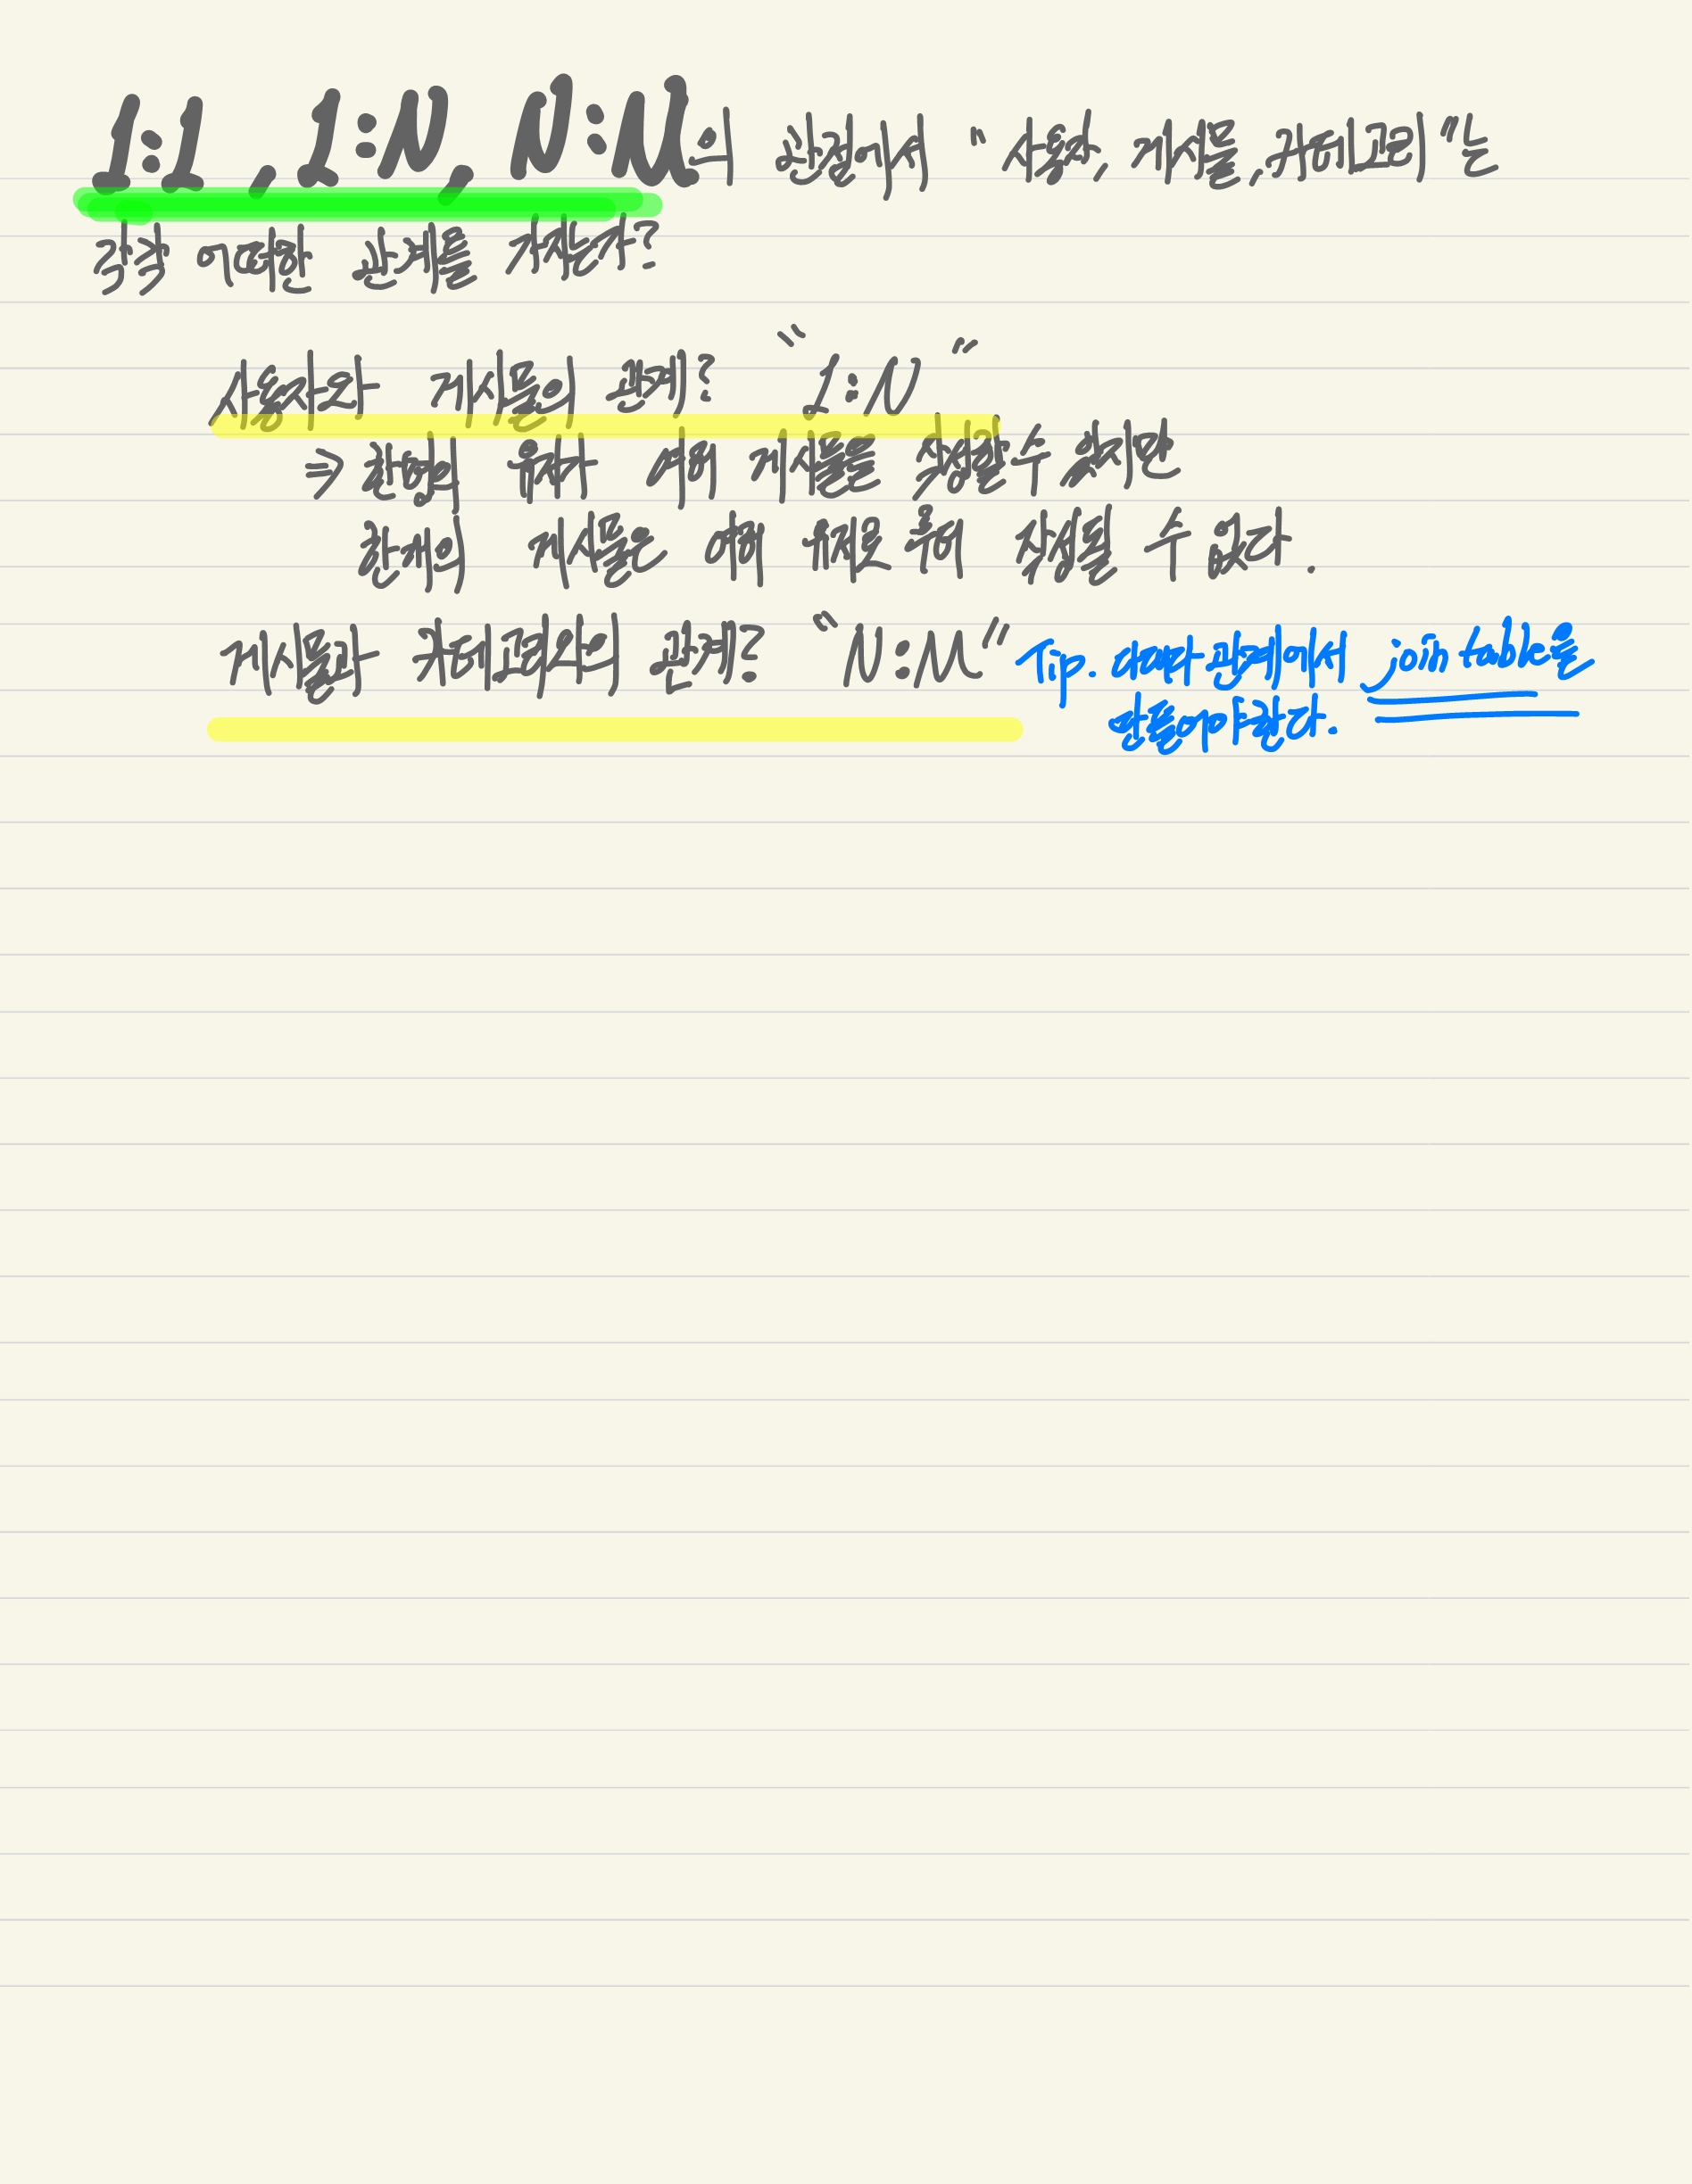 1:1, 1:N, N:M의 관점에서 “사용자, 게시물, 카테고리”는
각각 어떠한 관계를 가지는가?
사용자와 게시물의 관계? “1:N”
⇒ 한명의 유저가 여러 게시물을 작성할 수 있지만
한개의 게시물은 여러 유저로 부터 작성될 수 없다.
게시물과 카테고리와의 관계? “N:M” Tip. 다대다 관계에서 join table을
만들어야 한다.